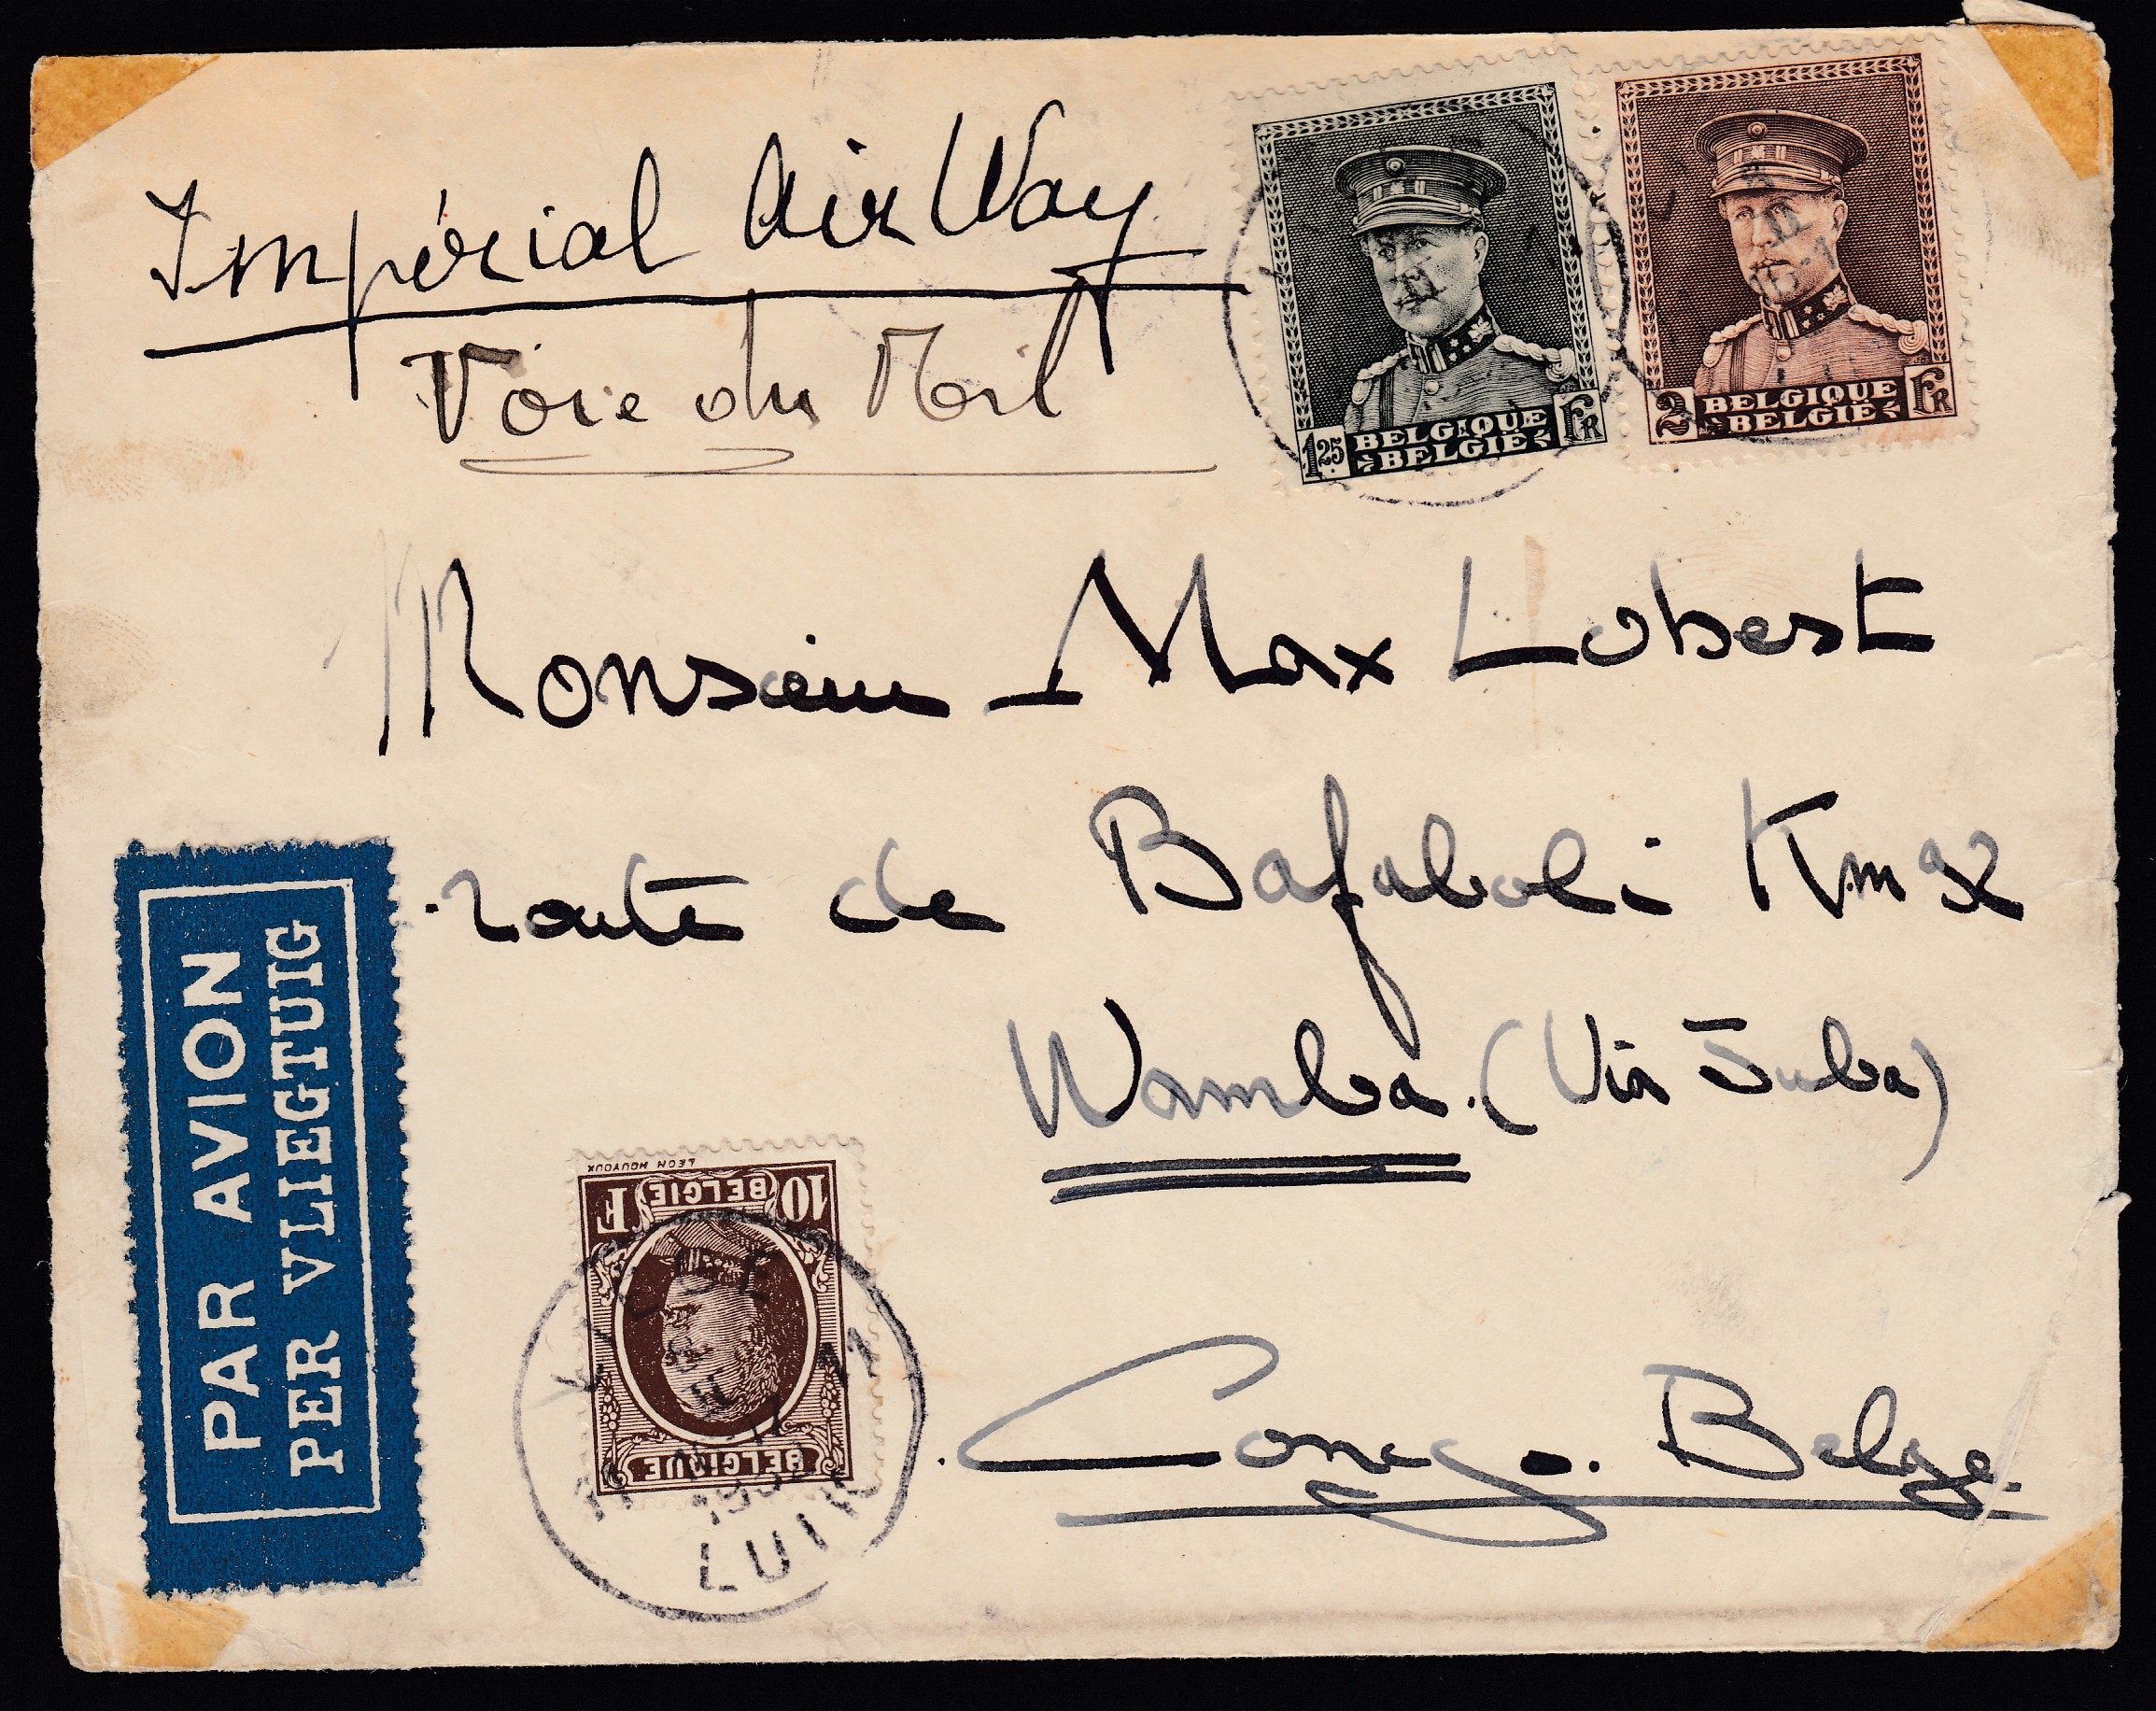 Impérial Air Way
Voie du Nil
1.25 BELGIQUE Fr
BELGIË
2 BELGIQUE Fr
BELGIË
Monsieur Max Lobest
route de Bafaboli Km 92
Wamba (Via Juba)
Congo. Belge.
PAR AVION
PER VLIEGTUIG
LEON HOUYOUX
10 BELGIE F
BELGIQUE
1932